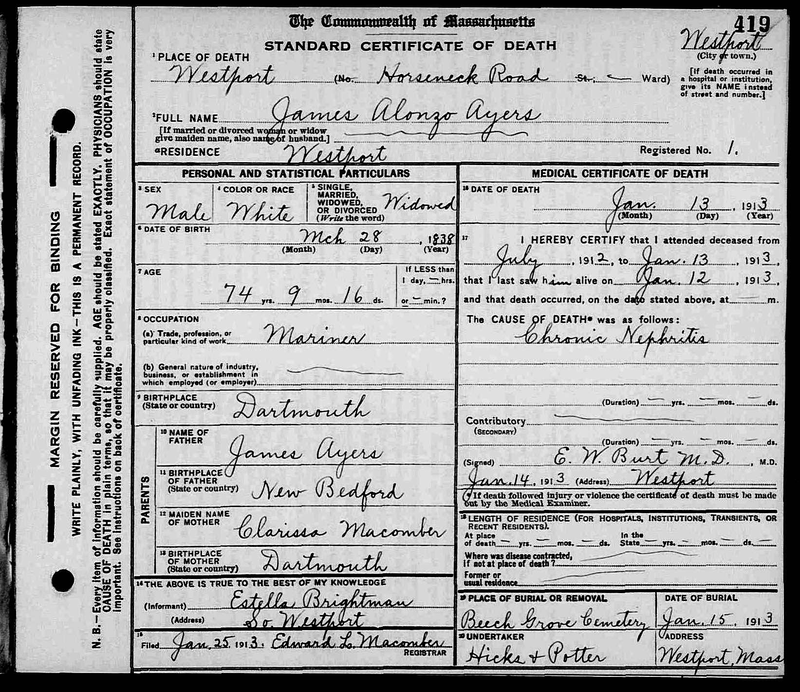 The Commonwealth of Massachusetts
419
STANDARD CERTIFICATE OF DEATH
Westport
(City or town.)
1 PLACE OF DEATH
Westport (No. Horseneck Road St., — Ward)
[If death occurred in a hospital or institution, give its NAME instead of street and number.]
2 FULL NAME James Alonzo Ayers
[If married or divorced woman or widow give maiden name, also name of husband.]
a RESIDENCE Westport
Registered No. 1.
PERSONAL AND STATISTICAL PARTICULARS
3 SEX Male
4 COLOR OR RACE White
5 SINGLE, MARRIED, WIDOWED, OR DIVORCED (Write the word) Widowed
6 DATE OF BIRTH
Mch 28, 1838
(Month) (Day) (Year)
7 AGE
74 yrs. 9 mos. 16 ds.
If LESS than 1 day, — hrs. or — min.?
8 OCCUPATION
(a) Trade, profession, or particular kind of work Mariner
(b) General nature of industry, business, or establishment in which employed (or employer)
9 BIRTHPLACE (State or country) Dartmouth
PARENTS
10 NAME OF FATHER James Ayers
11 BIRTHPLACE OF FATHER (State or country) New Bedford
12 MAIDEN NAME OF MOTHER Clarissa Macomber
13 BIRTHPLACE OF MOTHER (State or country) Dartmouth
14 THE ABOVE IS TRUE TO THE BEST OF MY KNOWLEDGE
(Informant) Estella Brightman
(Address) So Westport
15 Filed Jan. 25 1913. Edward L. Macomber
REGISTRAR
MEDICAL CERTIFICATE OF DEATH
16 DATE OF DEATH
Jan. 13, 1913
(Month) (Day) (Year)
17 I HEREBY CERTIFY that I attended deceased from
July, 1912, to Jan. 13, 1913,
that I last saw him alive on Jan. 12, 1913,
and that death occurred, on the date stated above, at — m.
The CAUSE OF DEATH* was as follows:
Chronic Nephritis
(Duration) — yrs. — mos. — ds.
Contributory
(SECONDARY)
(Duration) — yrs. — mos. — ds.
(Signed) E. W. Burt M.D., M.D.
Jan. 14, 1913 (Address) Westport
If death followed injury or violence the certificate of death must be made out by the Medical Examiner.
18 LENGTH OF RESIDENCE (FOR HOSPITALS, INSTITUTIONS, TRANSIENTS, OR RECENT RESIDENTS).
At place of death — yrs. — mos. — ds. In the State — yrs. — mos. — ds.
Where was disease contracted, if not at place of death?
Former or usual residence
19 PLACE OF BURIAL OR REMOVAL
Beech Grove Cemetery
DATE OF BURIAL
Jan. 15, 1913
20 UNDERTAKER
Hicks & Potter
ADDRESS
Westport, Mass
MARGIN RESERVED FOR BINDING
WRITE PLAINLY, WITH UNFADING INK—THIS IS A PERMANENT RECORD.
N. B.—Every item of information should be carefully supplied. AGE should be stated EXACTLY. PHYSICIANS should state
CAUSE OF DEATH in plain terms, so that it may be properly classified. Exact statement of OCCUPATION is very
important. See instructions on back of certificate.